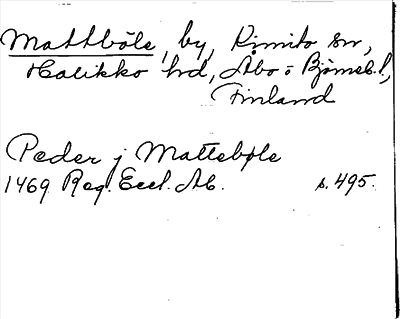 Mattböle, by, Kimito sn,
Halikko hd, Åbo o Björneb. l.,
Finland
Peder j Mattebøle
1469 Reg. Eccl. Ab. s. 495.